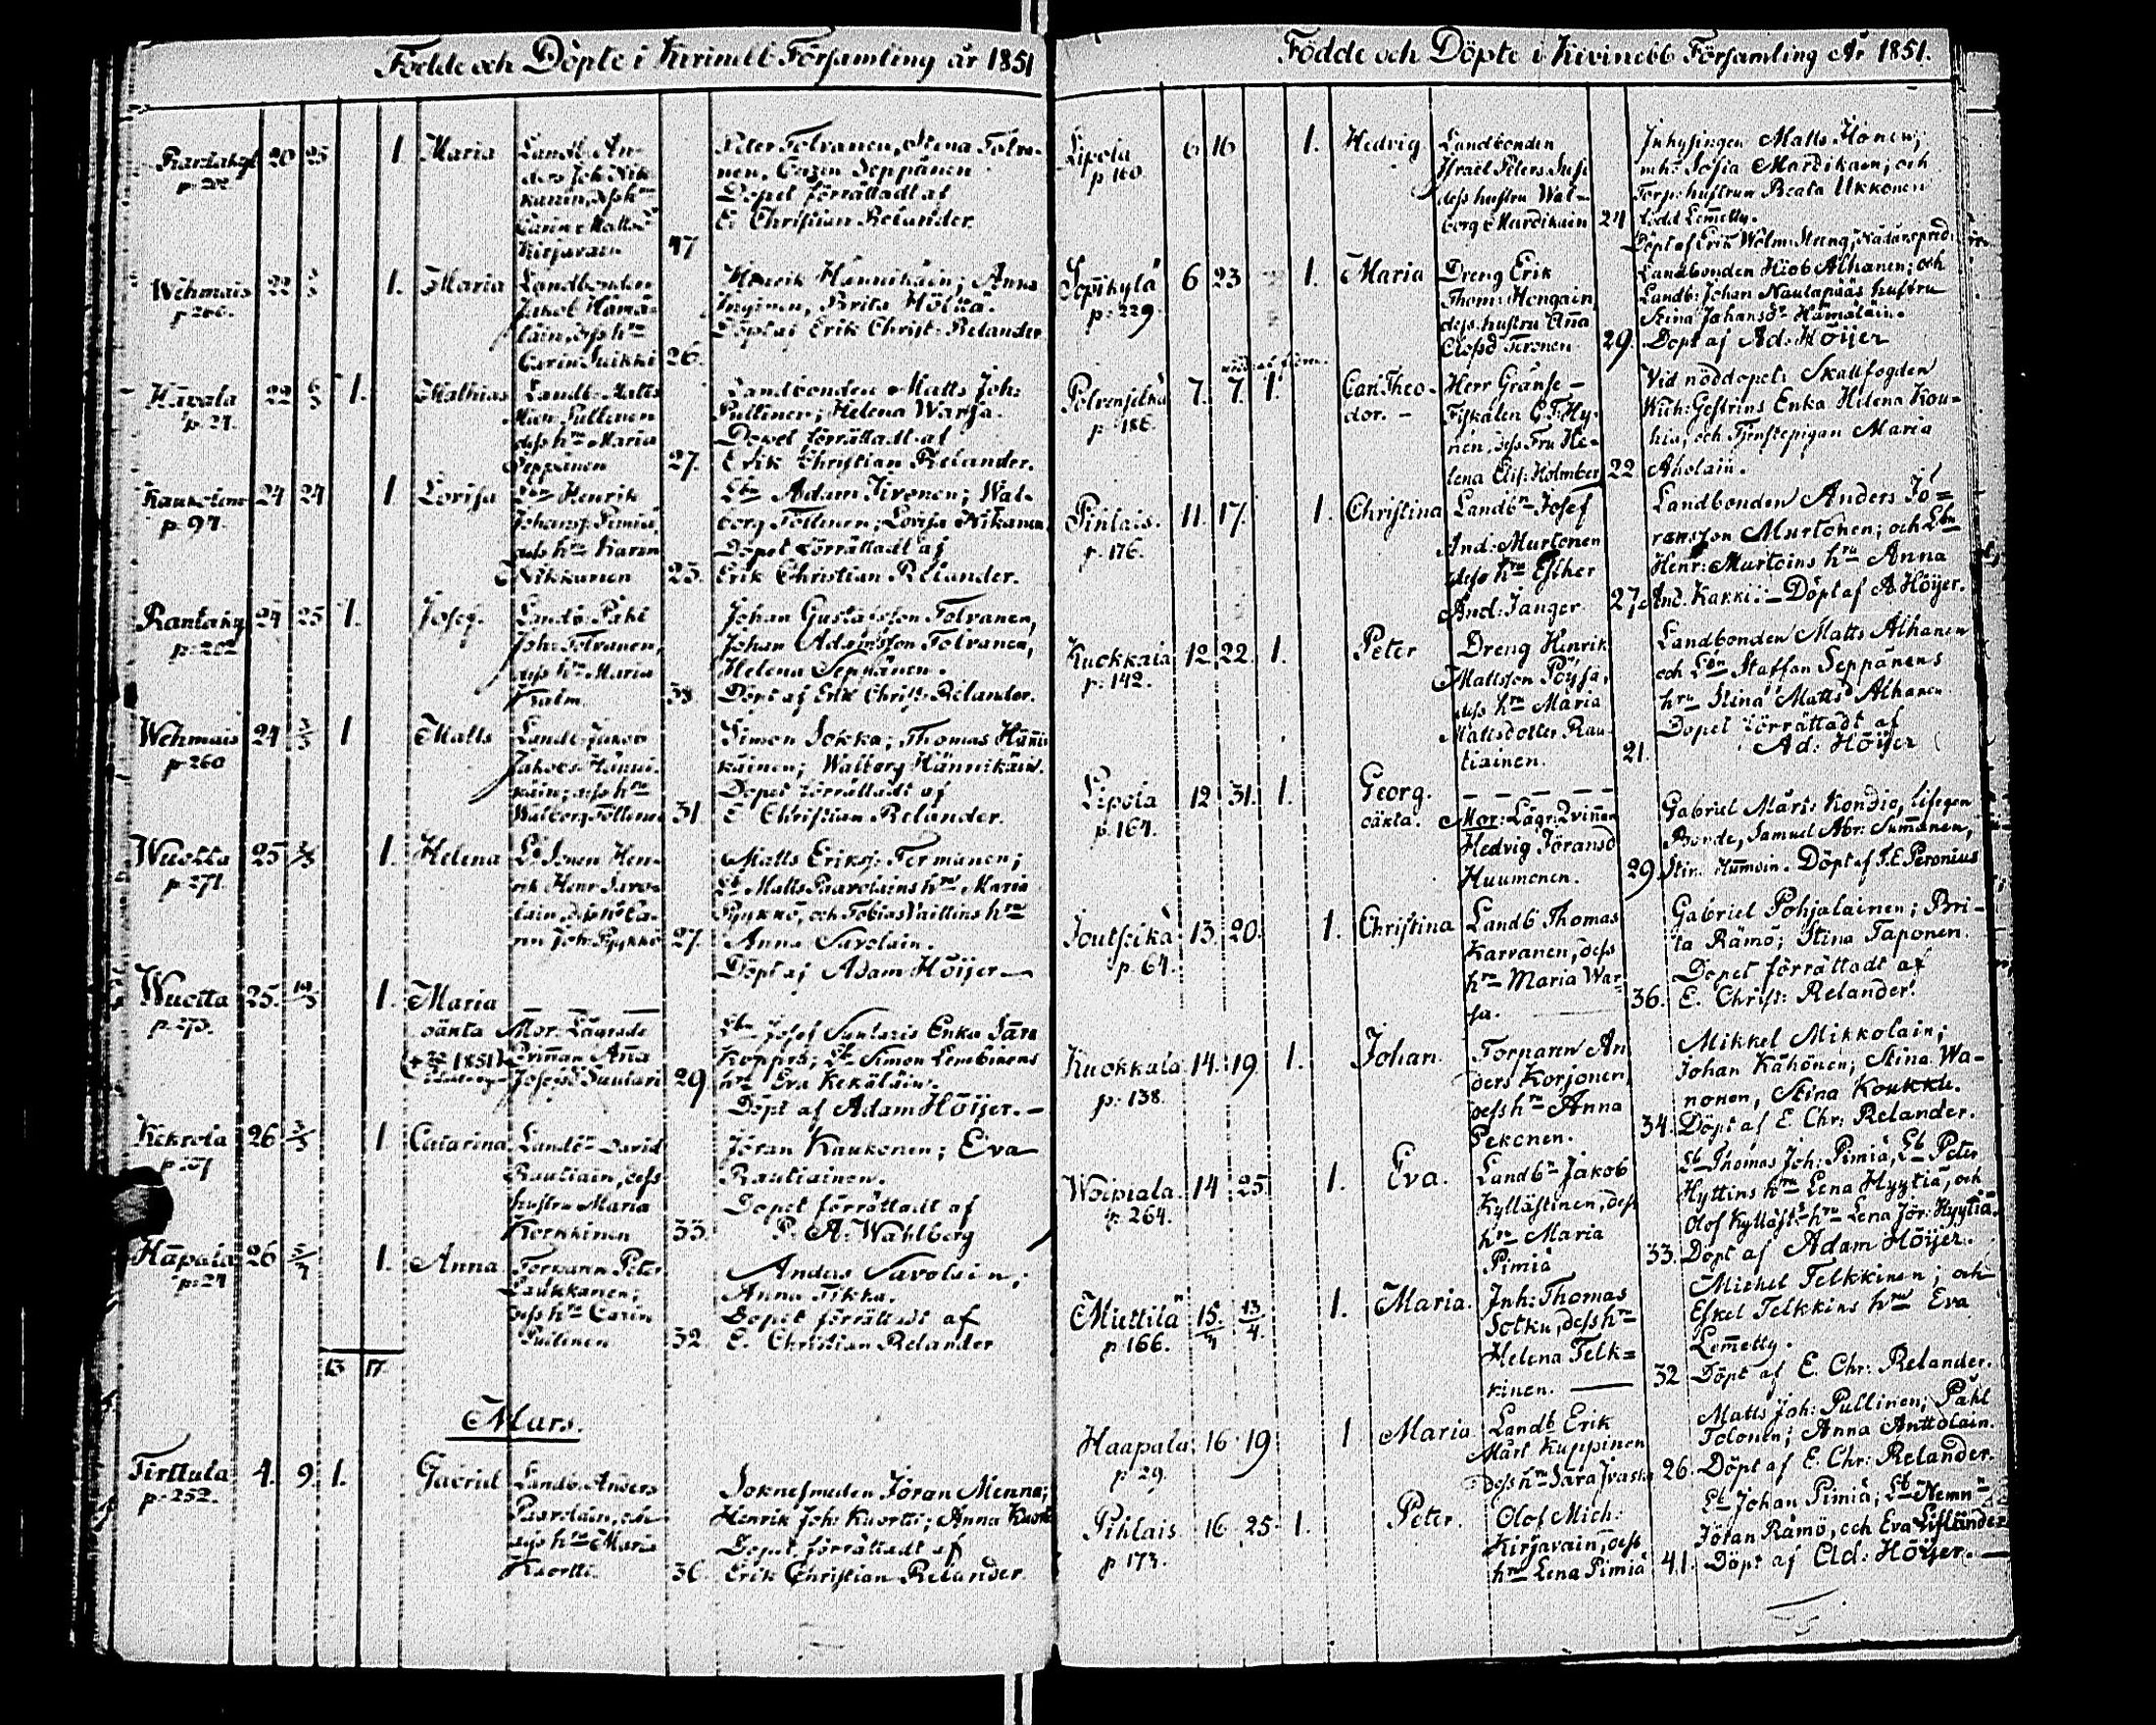 Födde och Döpte i Kivinebb Församling år 1851
Rantakyl 20 25 1 Maria Landb. An-
Peter Tolvanen, Stena Tolva-
nen, Carin Seppänen
Dopet förrättadt af
E. Christian Relander.
Kirjavain 47
Wehmais 22 1. Maria Landbonden
Jakob Hämä-
läin, dess hru
Carin Suikki 26.
Henrik Hännikäin; Anna
Inginen, Brita Hölttä.
Döpt af Erik Christ: Relander
Havala 22 1. Mathias Landb: Matts
Pullinen
dess hru Maria
Seppänen 27.
p. 27.
Landbonden Matts Joh:
Pullinen; Helena Warsa.
Dopet förrättadt af
Erik Christian Relander.
24 24 1 Lovisa Lbn Henrik
p. 97.
Johanss. Pimiä
dess hru Karin
Nikkanen 25.
Lbn Adam Tironen; Wal-
borg Tollinen; Lovisa Nikanen
Dopet förrättadt af
Erik Christian Relander.
Rantaky 24 25 1. Josef. Landb. Påhl
Joh: Tolvanen,
dess hru Maria
Johan Gustafsson Tolvanen,
Johan Adamsson Tolvanen,
Helena Seppänen.
Döpt af Erik Christ: Relander.
Wehmais 24 1 Matts Landb. Jakob
p. 260
Jakobs. Hänni-
käin; dess hru
Walborg Tollinen 31.
Simon Sokka; Thomas Hänni
käinen; Walborg Hännikäin.
Dopet förrättadt af
E. Christian Relander.
Wuotta 25 1. Helena
p. 271.
27.
Matts Erikss: Termänen;
Lb Matts Paavolains hru Maria
Pyykkö, och Tobias Vaittins hru
Anna Savolain.
Döpt af Adam Höijer
Wuotta 25. 1. Maria
oäkta Mor: Lägrade
Qvinnan Anna
Josefsd Suulari 29
hru Eva Kekäläin.
Döpt af Adam Höijer. –
Kekrola 26 1 Catarina Landbn David
Rautiain, dess
hustru Maria
Korkkinen 33.
Jöran Kaukonen; Eva
Rautiainen.
Dopet förrättadt af
P. A. Wahlberg
Hapala 26 1. Anna Torparen Peter
Laukkanen;
dess hru Carin
Pullinen 32.
Anders Savolain;
Anna Tikka.
Dopet förrättadt af
E. Christian Relander
13 17
Mars.
Tirttula 4. 9. 1. Gabriel Landb. Anders
p. 252.
Paavolain, och
dess hru Maria
Kuortti. 36.
Soknesmeden Jöran Menna;
Henrik Joh: Kuortti; Anna Kuort
Dopet förrättadt af
Erik Christian Relander
Födde och Döpte i Kivinebb Församling År 1851.
Lipola 6 16 1. Hedvig Landbonden
p. 160.
Israel Peters Susi
dess hustru Wal-
borg Mardikain 24
Inhysingen Matts Honen;
mh: Sofia Mardikain; och
Torp: hustrun Beata Ukkonen
född Lemetty.
Döpt af Erik Wilm: Streng, Nådårspred
6 23 1. Maria Dreng Erik
p. 229.
Thom: Hongain,
dess hustru Anna
29.
Landbonden Hiob Alhanen; och
Landb: Johan Nautapääs hustru
Stina Johansdr Hämäläin.
Döpt af Ad: Höijer
Polvenselkä 7. 7. 1. Carl Theo-
dor. –
p. 186.
Herr Gränse-
Fiskalen C. F. Hy-
nen, dess Fru He-
lena Elis: Holmber 22
Vid nöddopet: Skattfogden
Wilh: Gestrins Enka Helena Kou-
hia, och Tjenstepigan Maria
Aholain.
Pihlais. 11. 17. 1. Christina Landbn Josef
p. 176.
And: Murtonen
dess hru Esther
And: Janger. 27.
Landbonden Anders Jö=
ransson Murtonen; och Lbn
Henr: Murtoins hru Anna
And. Karki. – Döpt af A. Höijer.
Kuokkala 12. 22. 1. Peter Dreng Henrik
p. 142.
Mattsson Pöysä,
dess hru Maria
Mattsdotter Rau-
tiainen. 21.
Landbonden Matts Alhanen
och Lbn Staffan Seppänens
hru Stina Mattsd Alhanen
Dopet förrättadt af
Ad: Höijer
Lipola 12 31. 1. Georg.
p. 164.
oäkta. Mor: Lägr: Qvinnan
Hedvig Göransd
Huumonen. 29.
Gabriel Märts Kondio, lifegen
Bonde, Samuel Abr: Summanen,
Stin. Hummoin. Döpt af J. E. Peronius
Joutselkä 13. 20. 1. Christina Landb Thomas
p. 64.
Karvanen, dess
hru Maria War-
sa. 36.
Gabriel Pohjalainen; Bri-
ta Rämö; Stina Taponen.
Dopet förrättadt af
E. Christ: Relander.
Kuokkala 14. 19 1. Johan. Torparen An
p. 138.
ders Korjonen,
dess hru Anna
Pekonen. 34.
Mikkel Mikkolain;
Johan Kähönen; Stina Wa-
nonen, Stina Koukku.
Döpt af E. Chr: Relander.
Woipiala 14 25 1. Eva. Landbn Jakob
p. 264.
Kyllästinen, dess
hru Maria
Pimiä 33.
Lb Thomas Joh: Pimiä, Lb Peter
Hyttins hru Lena Hyytiä, och
Olof Kylläst:s hru Lena Jör: Hyytiä.
Döpt af Adam Höijer.
Muttila 15. 13/4. 1. Maria. Inh: Thomas
p. 166.
Sotku, dess hru
Helena Telk=
kinen. 32
Michel Telkkinen; och
Eskel Telkkins hru Eva
Lemetty.
Döpt af E. Chr: Relander.
Haapala 16 19 1 Maria Landb Erik
p. 29.
Märt Kuppinen
dess hru Sara Ivaska 26.
Matts Joh: Pullinen; Påhl
Tolonen; Anna Anttolain.
Döpt af E. Chr: Relander.
Pihlais 16 25 1. Peter. Olof Mich:
p. 173.
Kirjavain, dess
hru Lena Pimiä 41.
Lb Johan Pimiä; Lb Nemn:n
Jöran Rämö, och Eva Lifländer
Döpt af Ad: Höijer. –